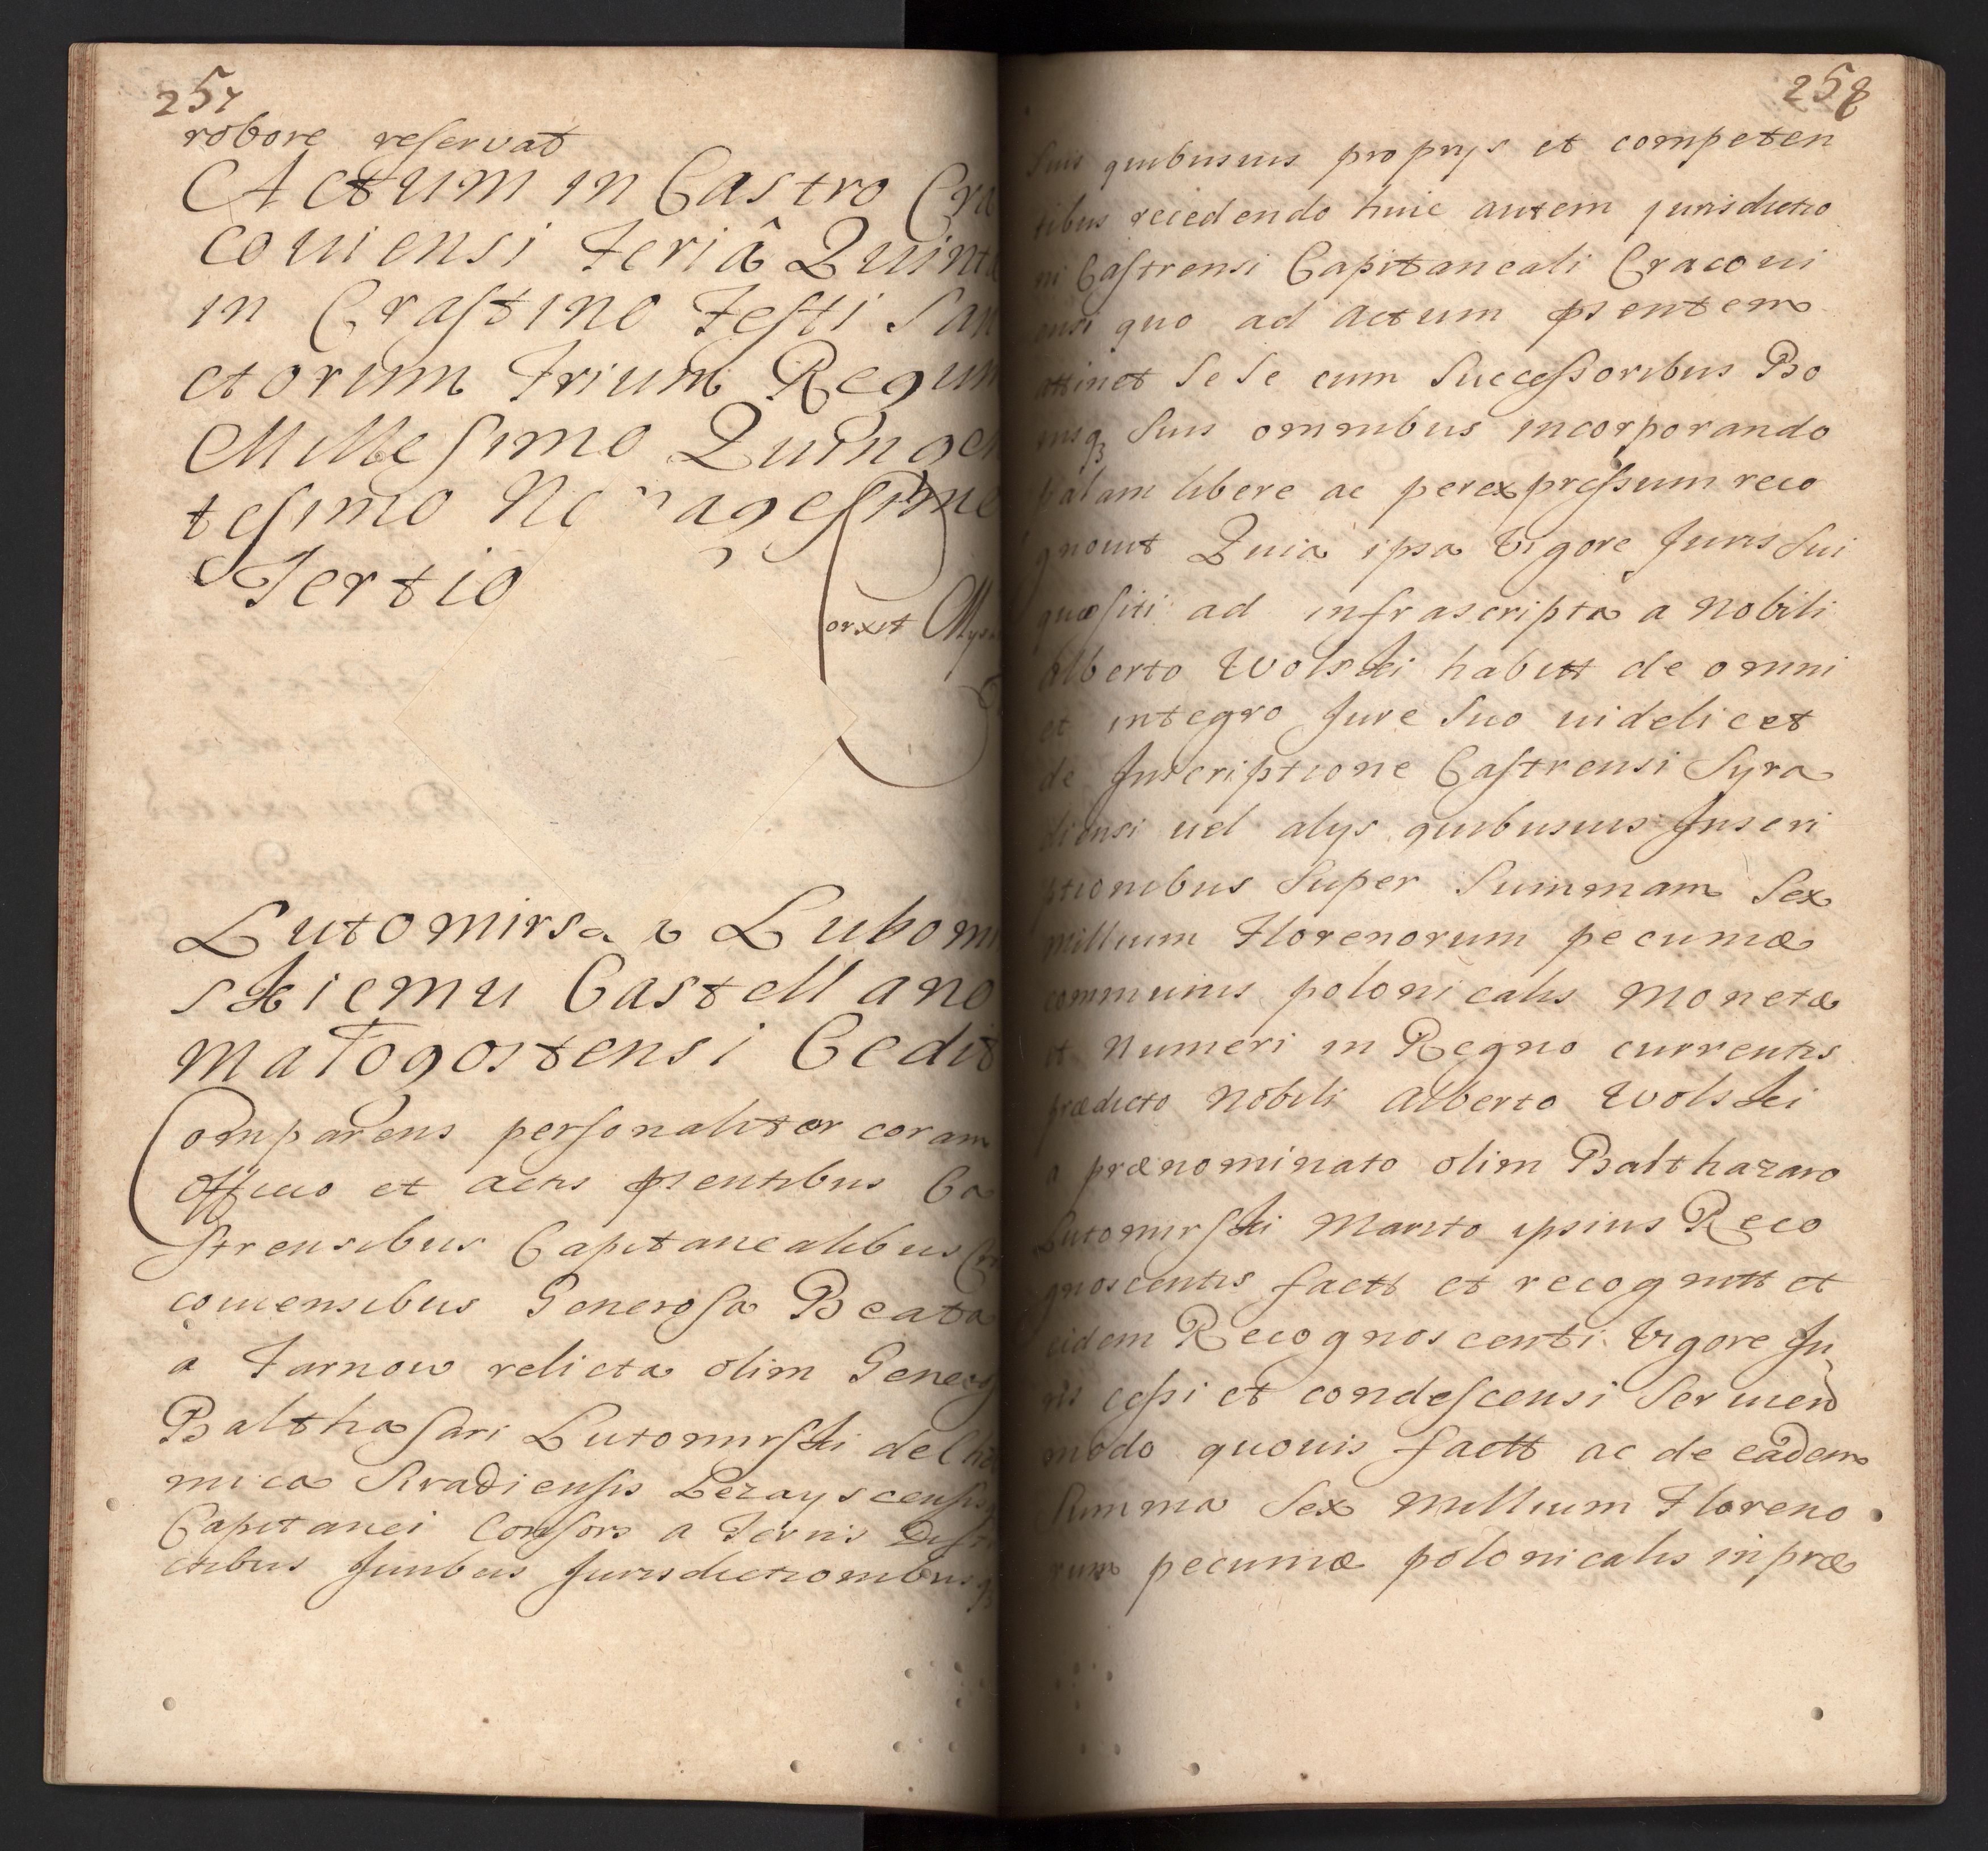 257
robore reservat
Actum in Castro Cra
coviensi Feriâ Quinta
in Crastino Festi San
ctorum Trium Regum
Millesimo Quingen
tesimo Nonagesimo
Tertio
Lutomirsa Lubomi
rskiemu Castellano
Małogostensi Cedit
Comparens personaliter coram
officio et actis pֿsentibus Ca
strensibus Capitanealibus Cra
coviensibus Generosa Beata
a Tarnow relicta olim Generosi
Balthasari Lutomirski de
mica Siradiensis Lezayscensisq
Capitanei Consors a Terris Distri
ctibus Juribus Jurisdictionibusq
258
Suis quibusuis proprys et competen
tibus recedendo huic autem jurisdictio
ni Castrensi Capitaneali Cracoui
ensi quo ad actum pֿsentem
attinet Se Se cum Successoribus Bo
nisq Suis omnibus incorporando
palam libere ac per expressum reco
gnouit Quia ipsa Vigore Juris Sui
quæsiti ad infrascripta a Nobili
Alberto Wolski habitt de omni
et integro Jure Suo uidelicet
de Inscriptione Castrensi Syra
diensi uel alys quibusuis Inscri
ptionibus Super Summam Sex
millium Florenorum pecuniæ
communis polonicalis Monetæ
et Numeri in Regno currentis
prædicto Nobili Alberto Wolski
a prænominato olim Balthazaro
Lutomirski Marito ipsius Reco
gnoscentis factt et recognitt et
eidem Recognoscenti Vigore Ju
ris cessi et condescensi Seruien
modo quouis factt ac de eadem
Summa Sex Millium Floreno
rum pecuniæ polonicalis in præ